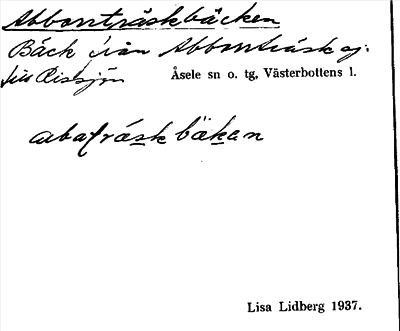 Abborrträskbäcken
Bäck från Abborrträsk
till Risksjön Åsele sn o. tg, Västerbottens l.
bäkan
Lisa Lidberg 1937.